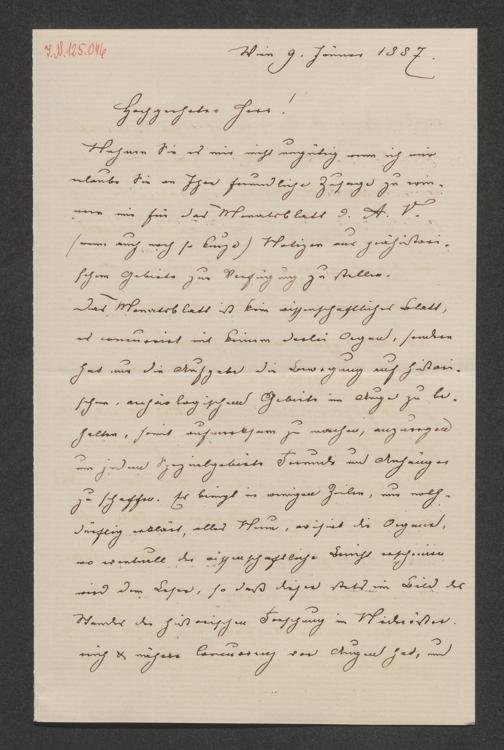 J.N. 125.046
Wien 9. Jänner 1887.
Hochgeehrter Herr!
Nehmen Sie es mir nicht ungütig wenn ich mir
erlaube Sie an Ihre freundliche Zusage zu erin-
nern mir für das Monatsblatt d. A. V.
(wenn auch noch so kurze) Notizen aus prähistori-
schem Gebiete zur Verfügung zu stellen.
Das Monatsblatt ist kein wissenschaftliches Blatt,
es concurrirt mit keinem derlei Organ, sondern
hat nur die Aufgabe die Bewegung auf histori-
schem, archäologischem Gebiete im Auge zu be-
halten, somit aufmerksam zu machen, anzuregen
um jedem Spezialgebiete Freunde und Anhänger
zu schaffen. Er bringt in wenigen Zeilen, nur noth-
dürftig erklärt, alles Neue, die Organe,
wo eventuell der wissenschaftliche Bericht erscheinen
wird dem Leser, so daß dieser stets ein Bild des
Standes der historischen Forschung in Niederöster-
reich & nähere Umgebung vor Augen hat, und